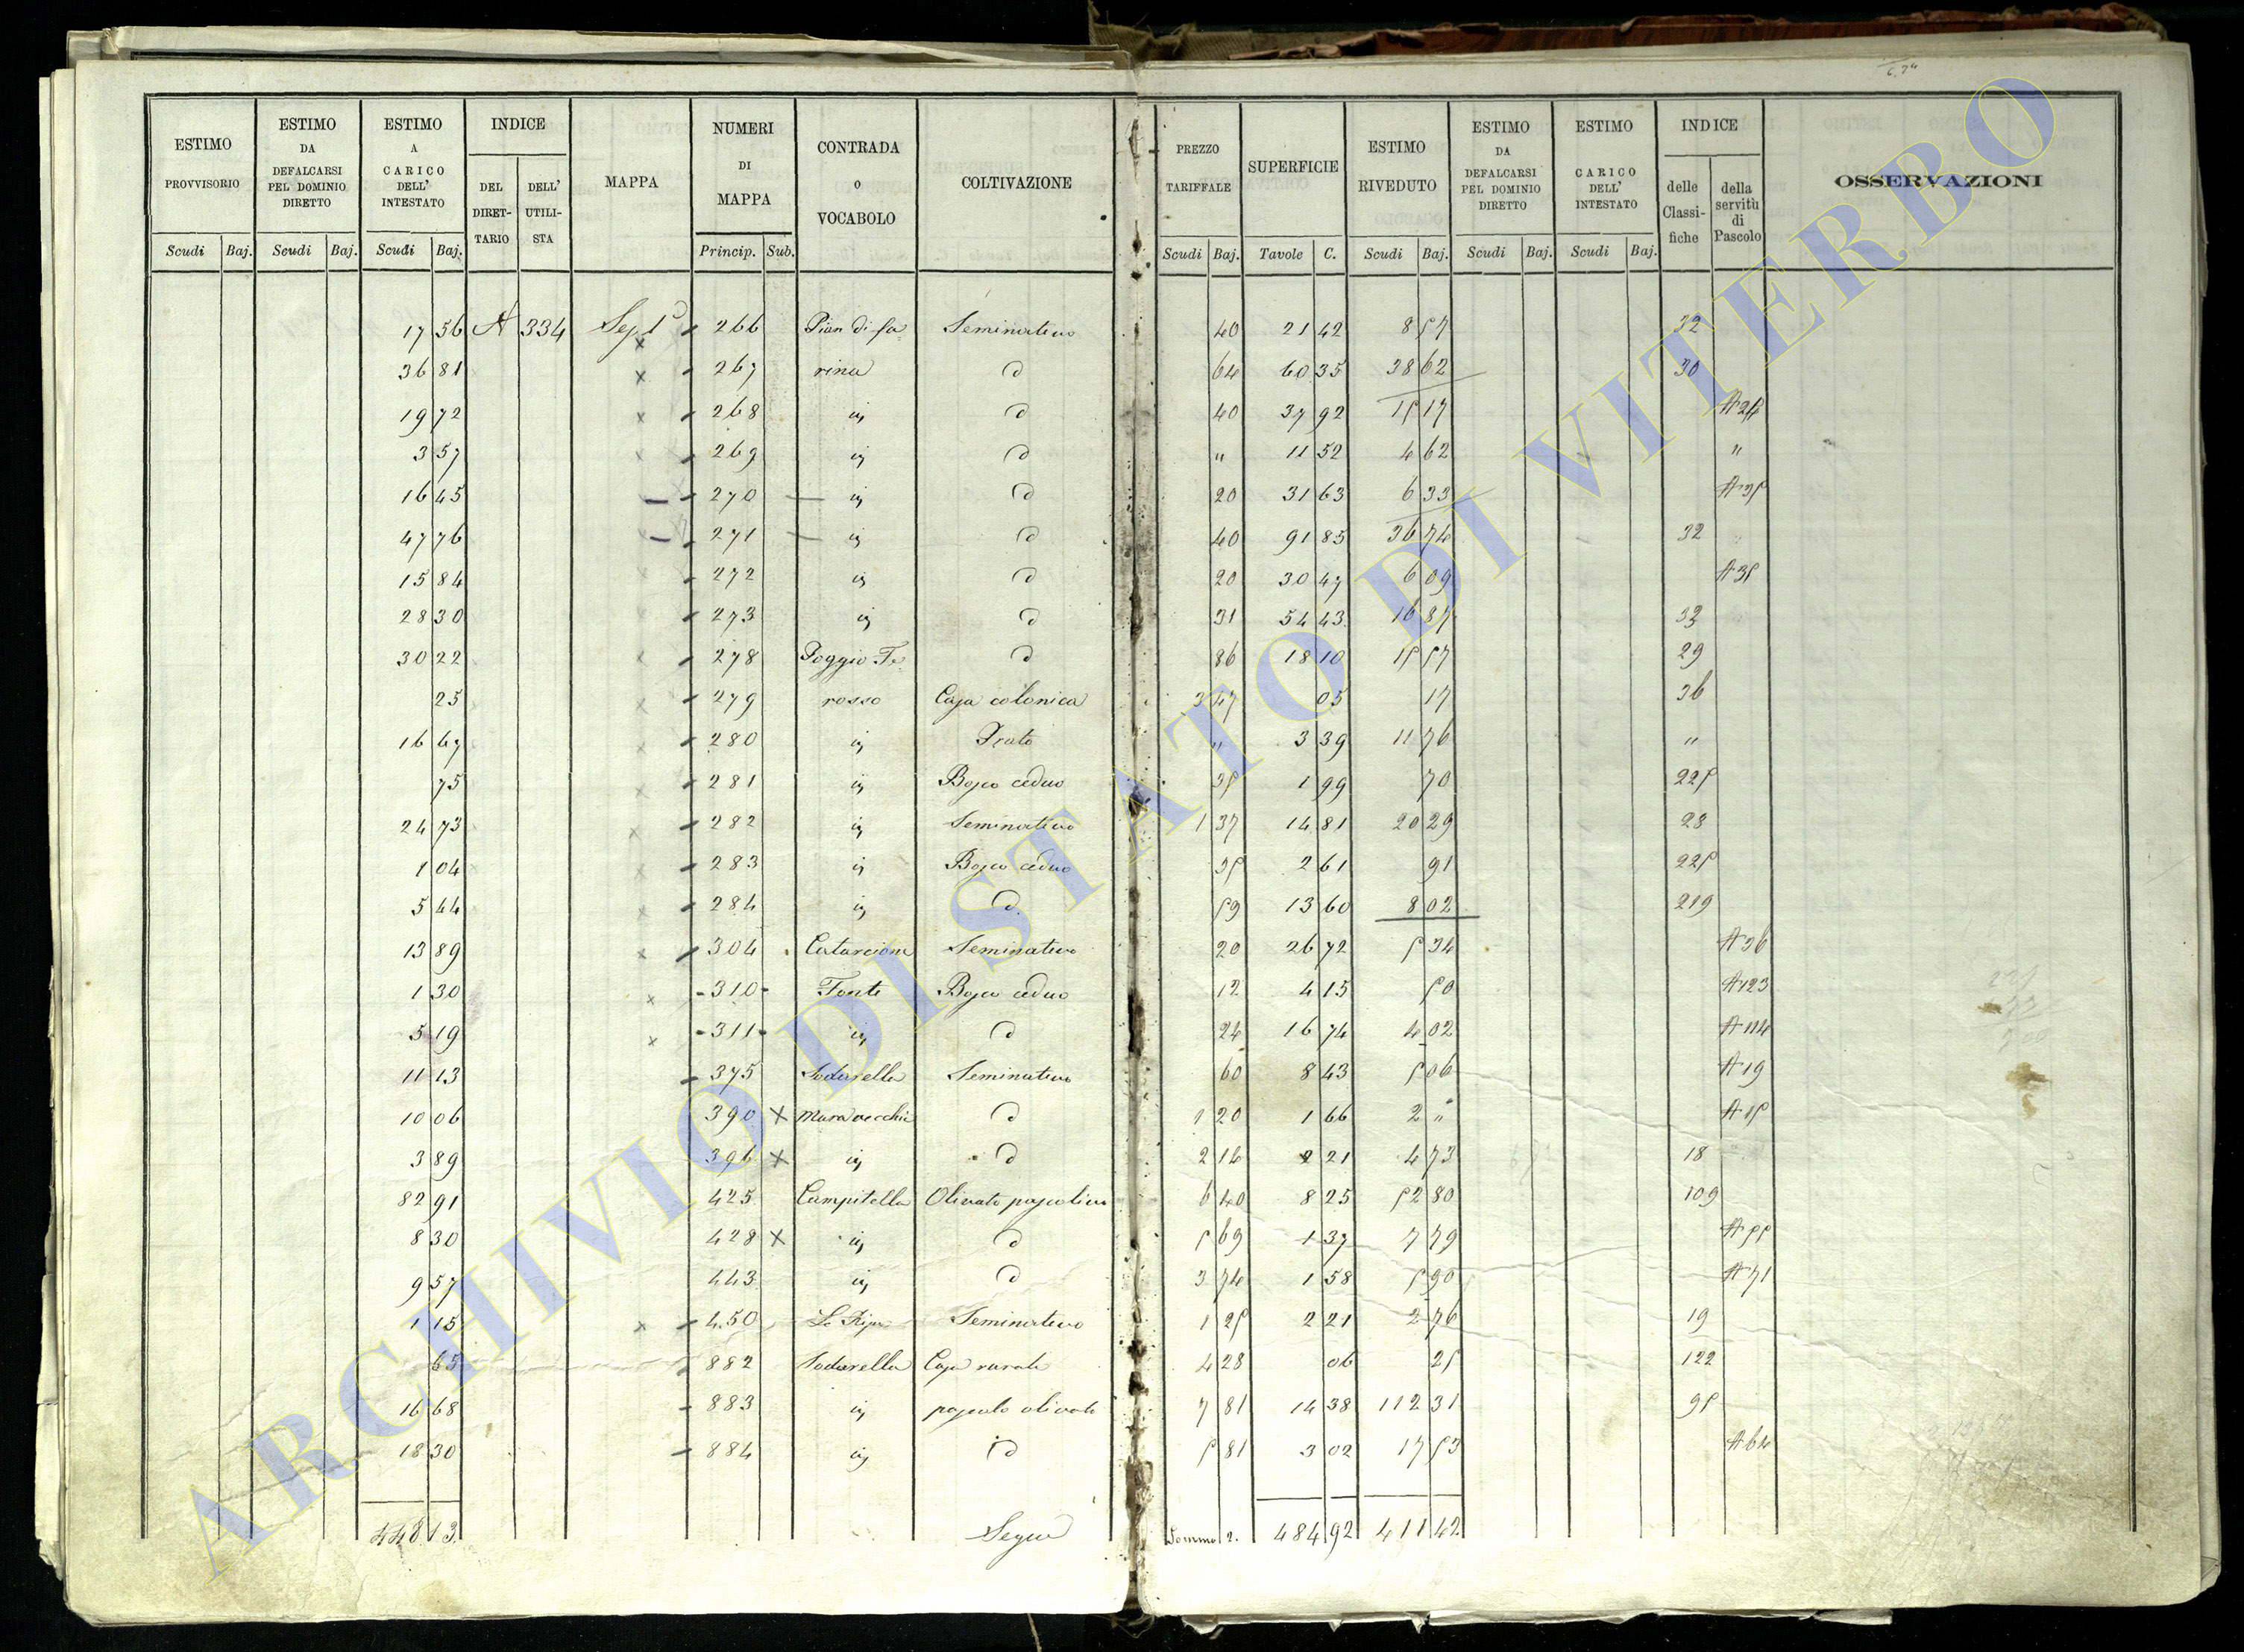 ESTIMO PROVVISORIO | ESTIMO DA DEFALCARSI PEL DOMINIO DIRETTO | ESTIMO A CARICO DELL' INTESTATO | INDICE | MAPPA | NUMERI DI MAPPA | CONTRADA O VOCABOLO | COLTIVAZIONE | PREZZO TARIFFALE | SUPERFICIE | ESTIMO RIVEDUTO | ESTIMO DA DEFALCARSI PEL DOMINIO DIRETTO | ESTIMO CARICO DELL' INTESTATO | INDICE | OSSERVAZIONI
DEL DIRETTARIO | DELL' UTILISTA | delle Classifiche | della servitù di Pascolo
Scudi | Baj. | Scudi | Baj. | Scudi | Baj. | Princip. | Sub. | Scudi | Baj. | Tavole | C. | Scudi | Baj. | Scudi | Baj. | Scudi | Baj.
17 56 A 334 266 Pian di fa= Seminativo 40 21 42 8 57 32
36 81 267 rina d 64 60 35 38 62 30
19 72 268 d 40 37 92 15 17 A 24
3 57 269 d " 11 52 4 62 "
16 45 270 d 20 31 63 6 33 A 35
47 76 271 d 40 91 85 36 74 32
15 84 272 d 20 30 47 6 09 A 35
28 30 273 d 31 54 43 16 87 33
30 22 278 Poggio Te= d 86 18 10 15 57 29
25 279 rosso Casa colonica 3 47 05 17 36
16 67 280 Prato " 3 39 11 76 "
75 281 Bosco ceduo 35 1 99 70 225
24 73 282 Seminativo 1 37 14 81 20 29 28
1 04 283 Bosco ceduo 35 2 61 91 225
5 44 284 d 59 13 60 8 02 219
13 89 304 Catarcione Seminativo 20 26 72 5 34 A 36
1 30 310 Fonte Bosco ceduo 12 4 15 50 A 123
5 19 311 d 24 16 74 4 02 A 114
11 13 375 Sodarella Seminativo 60 8 43 5 06 A 19
10 06 390 X Mura vecchie d 1 20 1 66 2 " A 15
3 89 396 X d 2 14 2 21 4 73 18
82 91 425 Campitella Olivato pascolivo 6 40 8 25 52 80 109
8 30 428 X d 5 69 1 37 7 79 A 55
9 57 443 d 3 74 1 58 5 90 A 71
1 15 450 La Ripa Seminativo 1 25 2 21 2 76 19
65 882 Sodarella Casa rurale 4 28 06 25 122
16 68 883 pascolo olivato 7 81 14 38 112 31 95
18 30 884 id 5 81 3 02 17 53 A 64
448 13 Segue Somma 2. 484 92 411 42
ARCHIVIO DI STATO DI VITERBO